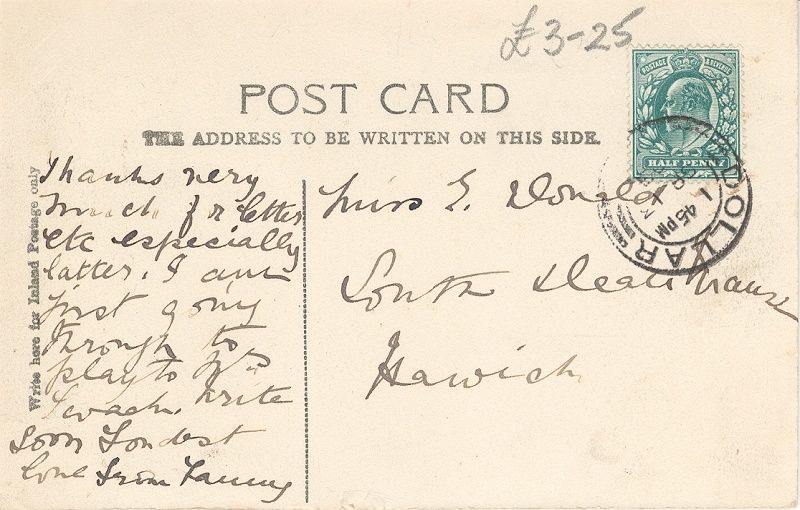 £3-25
POST CARD
THE ADDRESS TO BE WRITTEN ON THIS SIDE.
POSTAGE & REVENUE
HALF PENNY
DOLLAR
1 45 PM
Write here for Inland Postage only
Thanks very
much for letter
etc especially
latter. I am
just going
through to
play to Mrs
write
soon Fondest
love from
Miss E. Donald
South
Hawick